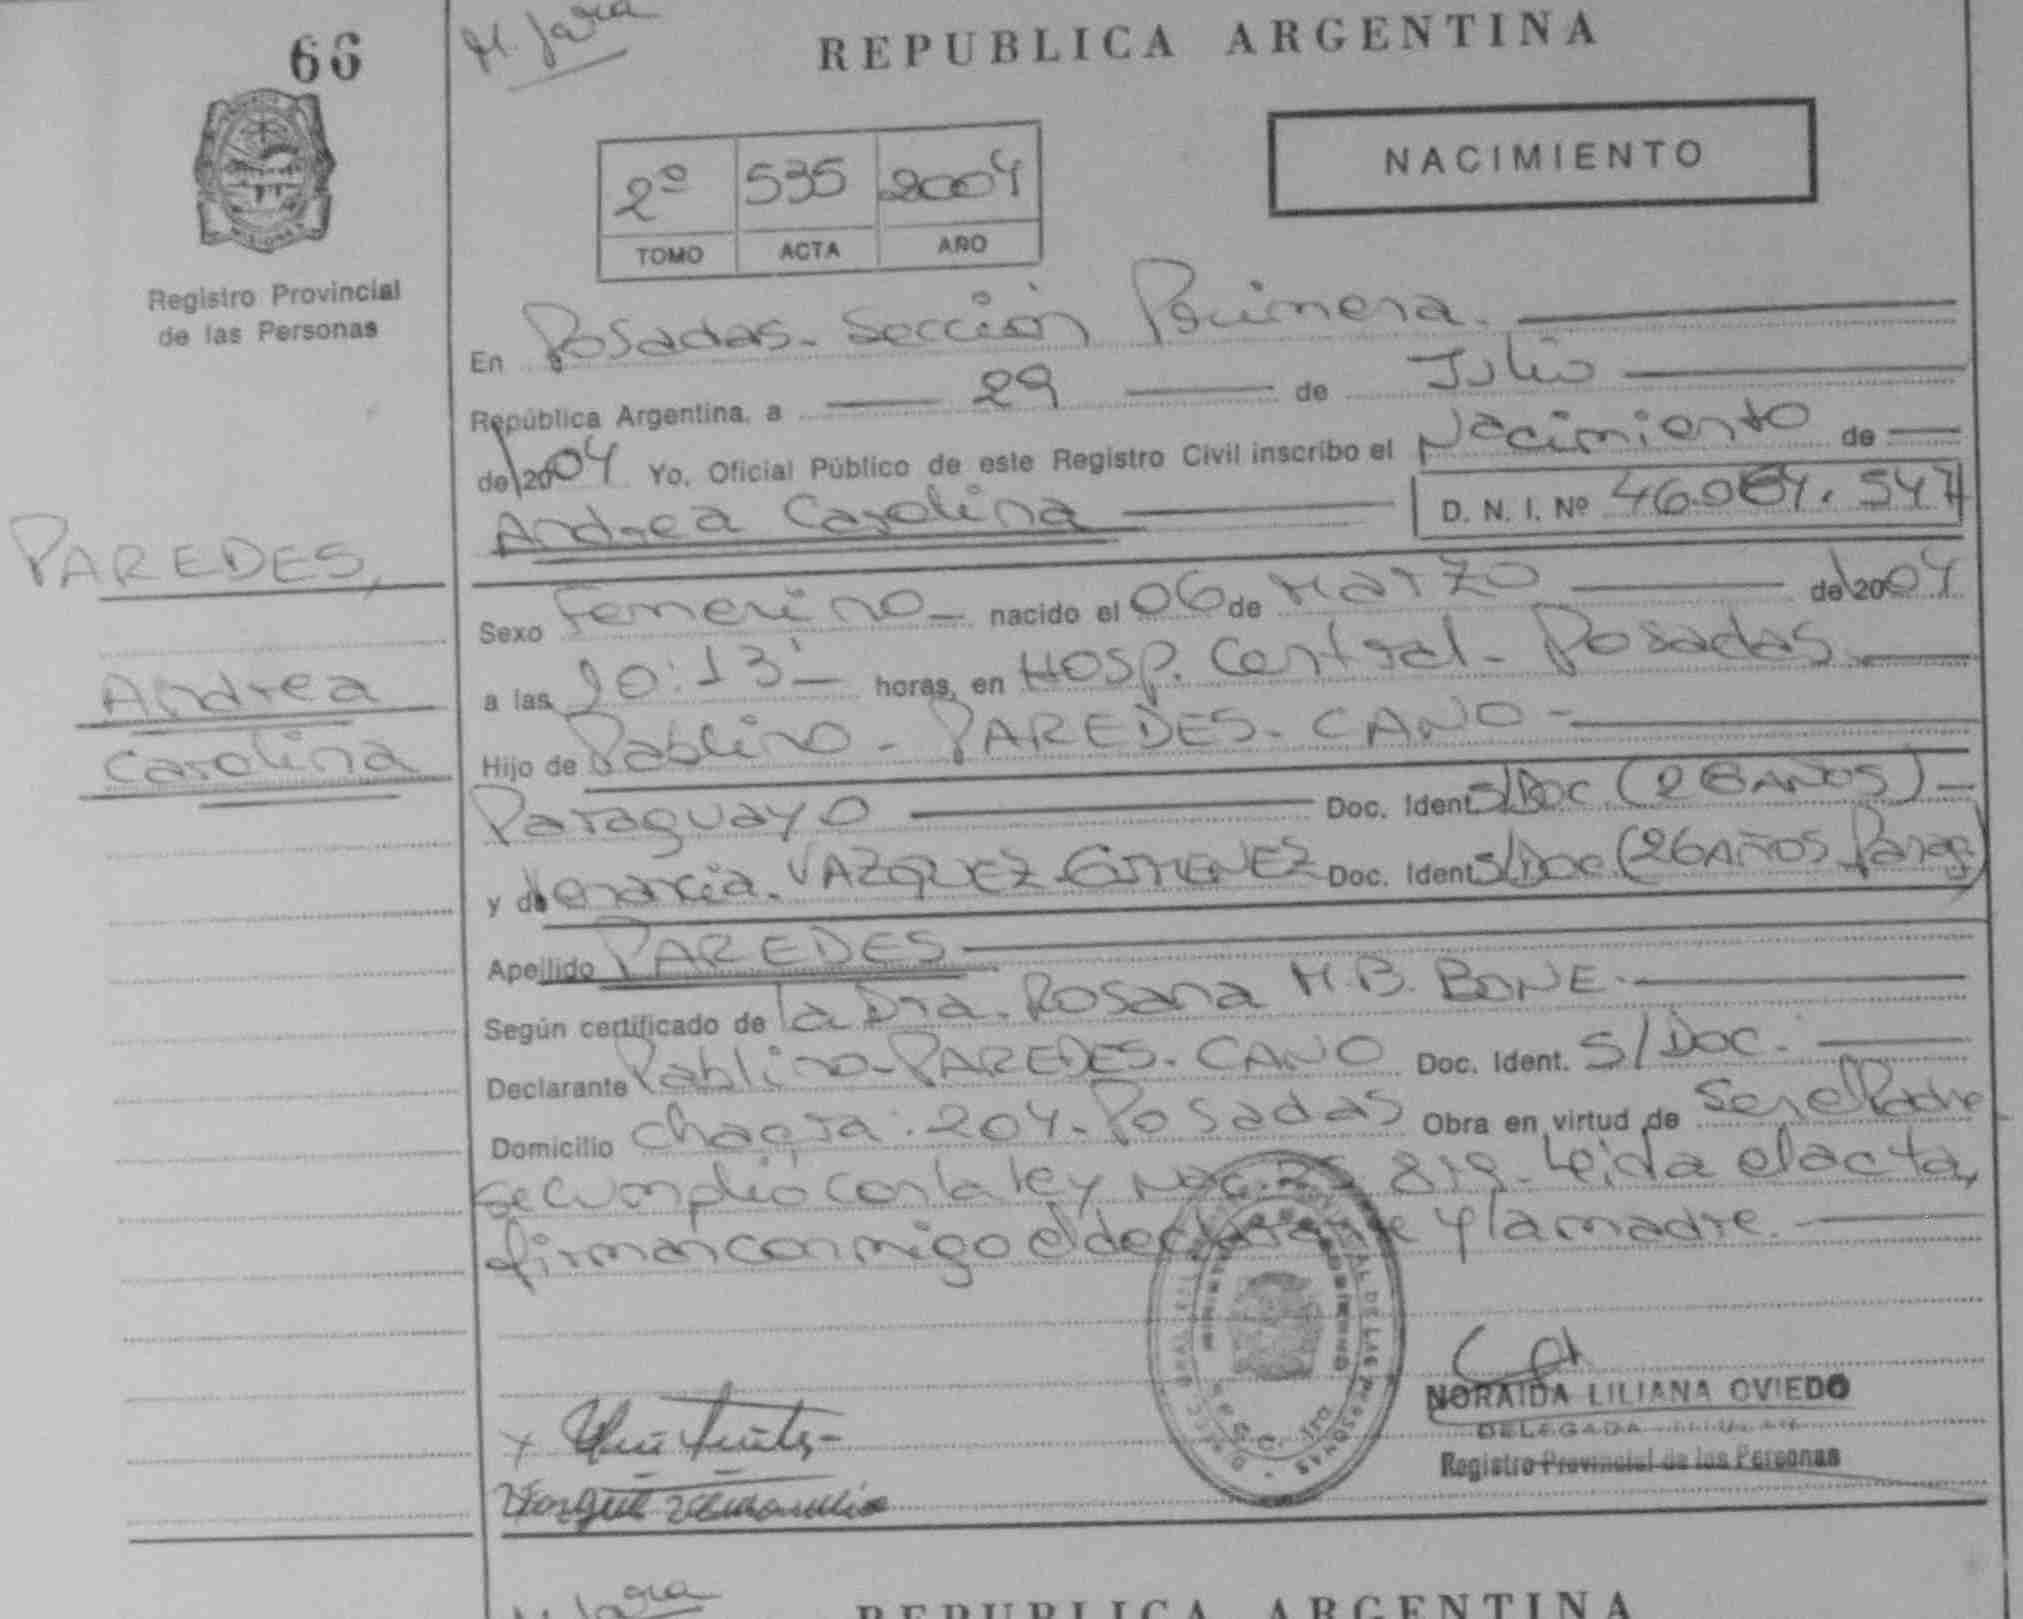 66
REPUBLICA ARGENTINA
NACIMIENTO
2º 535 2004
TOMO ACTA AÑO
Registro Provincial
de las Personas
En Posadas. Sección Primera.
República Argentina, a 29 de Julio
de 2004 Yo, Oficial Público de este Registro Civil inscribo el Nacimiento de
Andrea Carolina D. N. I. Nº 547
PAREDES,
Andrea
Carolina
Sexo Femenino nacido el 06 de Marzo de 2004
a las 20:13 horas, en Hosp. Central - Posadas
Hijo de Pablino - PAREDES - CANO -
Paraguayo Doc. Ident S/Doc (28 AÑOS) -
y de VAZQUEZ GIMENEZ Doc. Ident S/Doc (26 AÑOS Parag)
Apellido PAREDES
Según certificado de la Dra. Rosana M.B. BONE.
Declarante Pablino - PAREDES - CANO Doc. Ident. S/Doc.
Domicilio Chacra: 204. Posadas Obra en virtud de Ser el Padre
se cumplió con la ley Nac. 25 819. Leida el acta,
firman conmigo el declarante y la madre.
NORAIDA LILIANA OVIEDO
DELEGADA
Registro Provincial de las Personas
REPUBLICA ARGENTINA